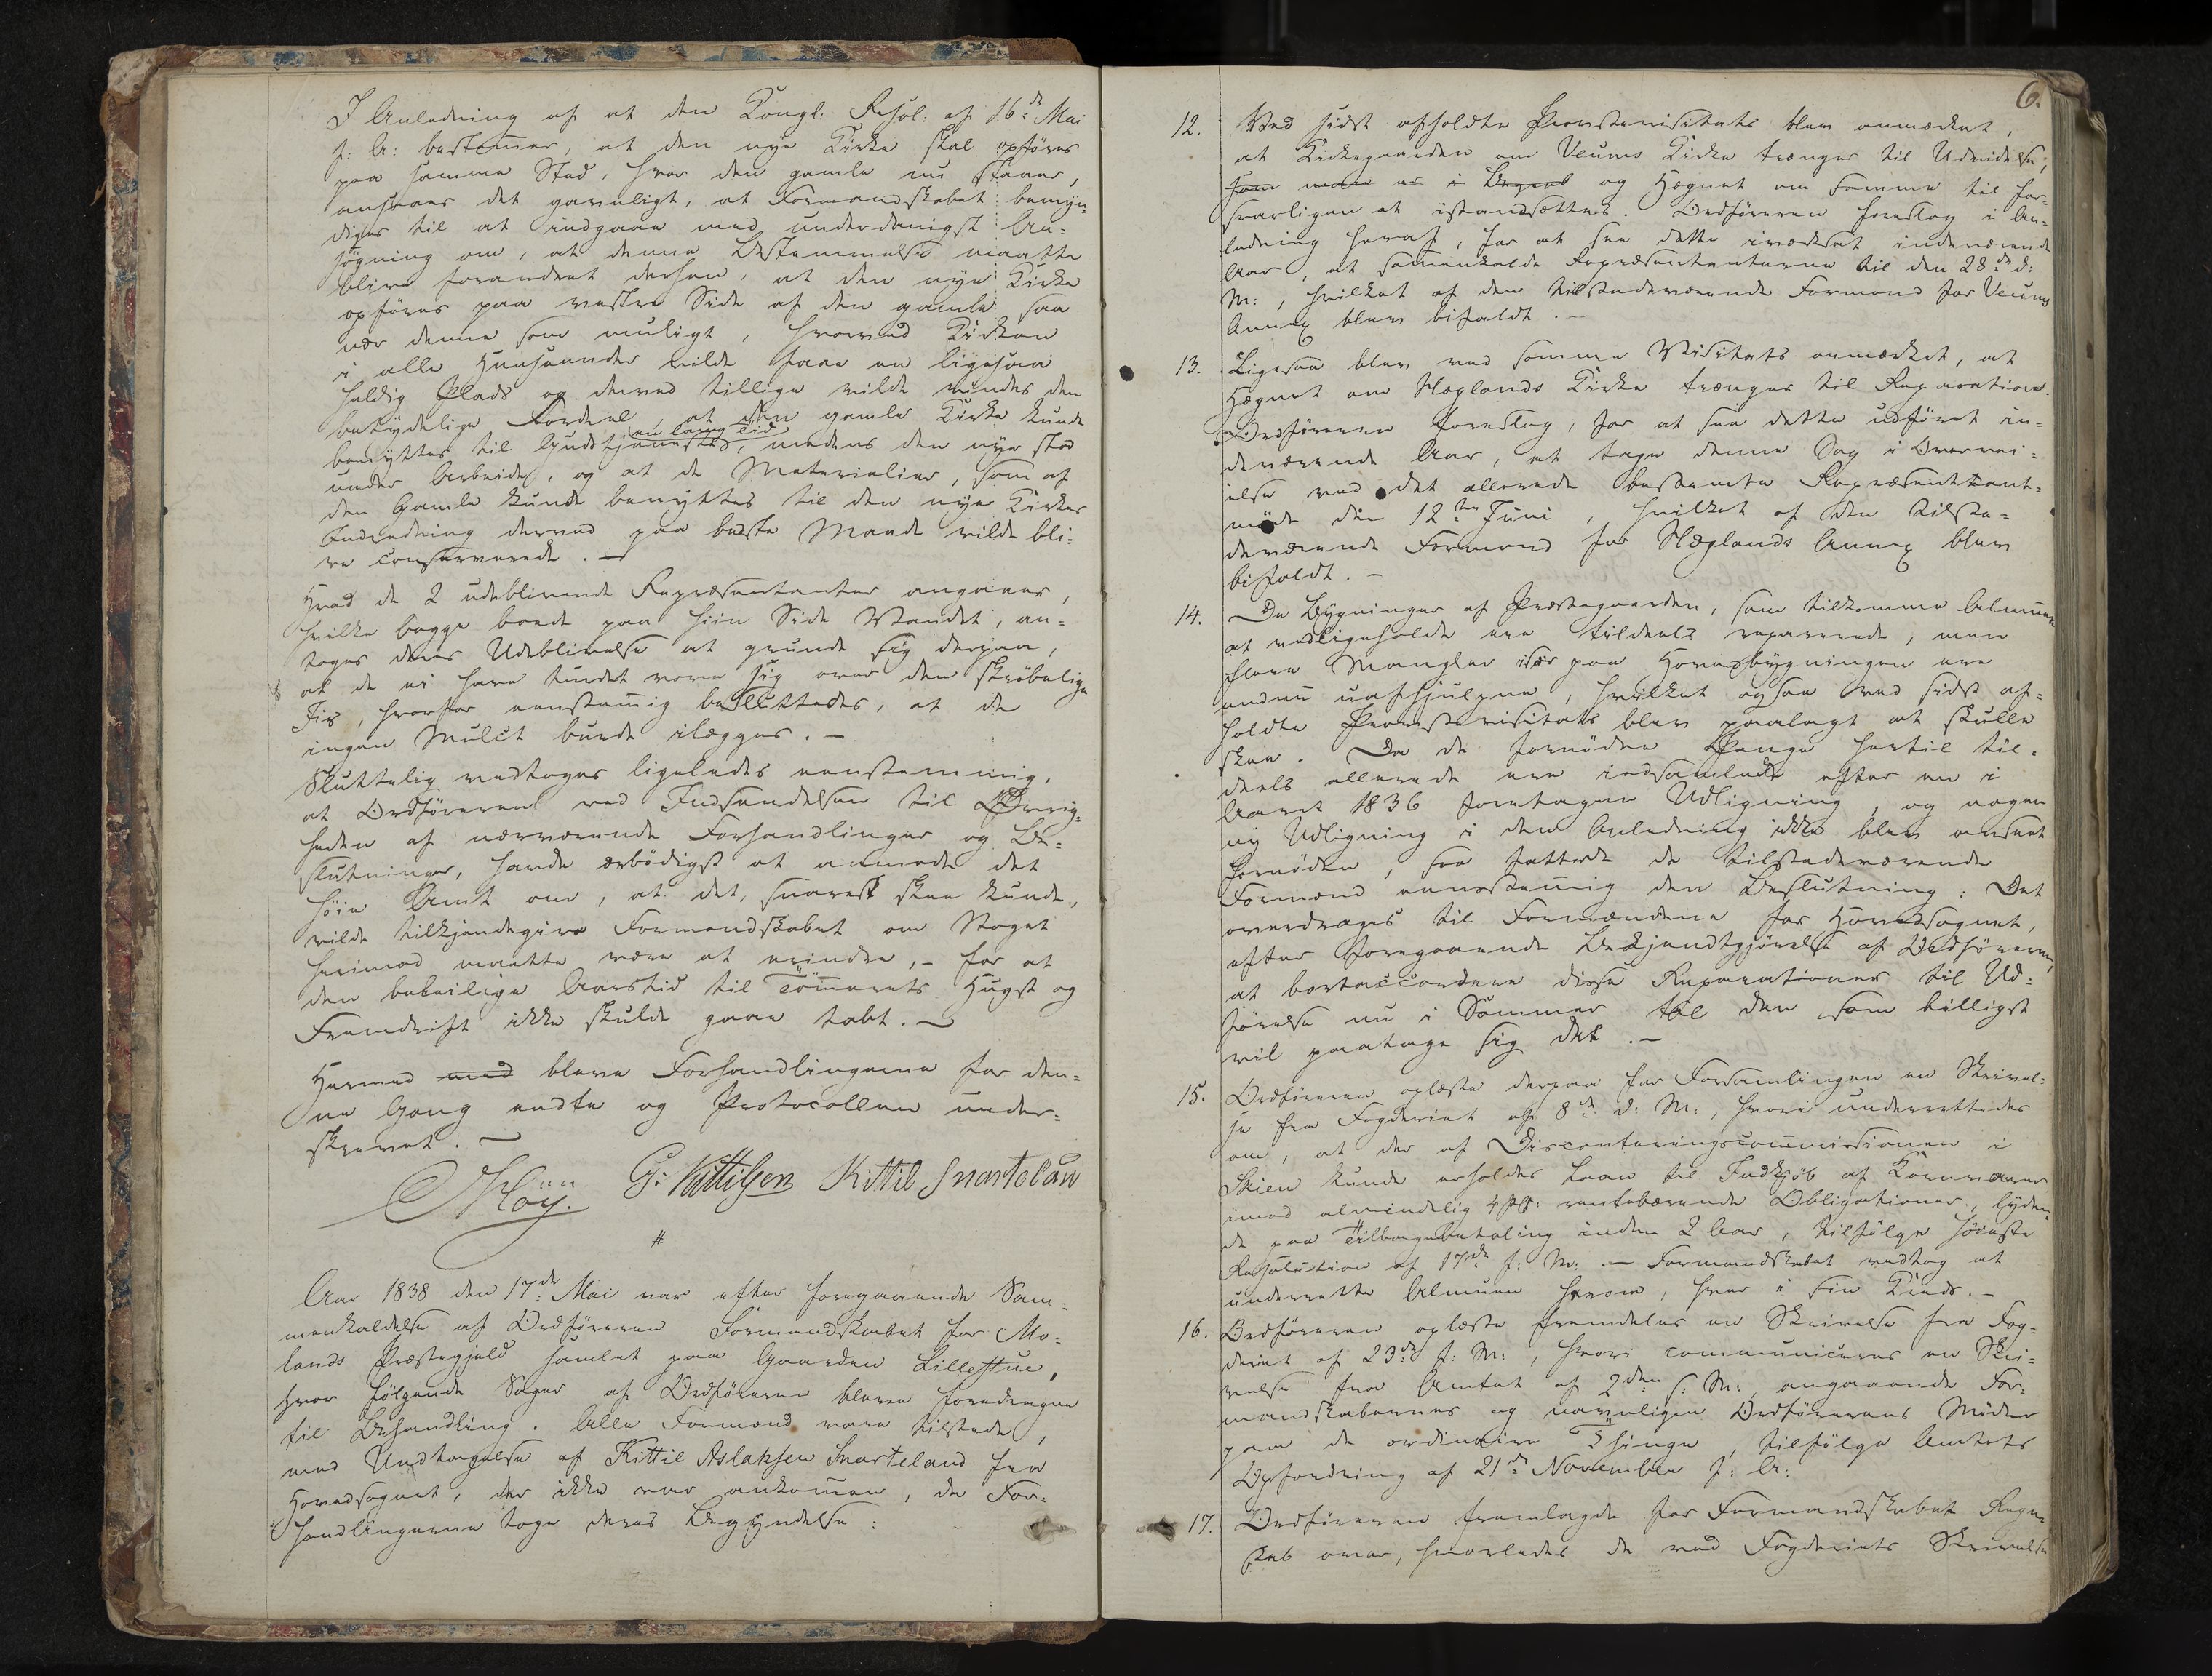 I Anledning af at den Kongl: Resol: af 16de Mai
f: A: bestemmer, at den nye Kirke skal opføres
paa samme Sted, hvor den gamle nu staaer,
ansaaes det gavnligt, at Formandskabet bemyn-
diges til at indgaae med underdanigst An-
søgning om, at denne Bestemmelse maatte
blive forandret derhen, at den nye Kirke
opføres paa vestre Side af den gamle saa
nær denne som muligt, hvorved Kirken
i alle Henseender vilde faae en ligesaa
heldig Plads og derved tillige vilde vindes den
betydelige Fordeel, at den gamle Kirke kunde
en lang Tid
benyttes til Gudstjenester, medens den nye stod
under Arbeide, og at de Materialier, som af
den Gamle kunde benyttes til den nye Kirkes
Indredning derved paa bedste Maade vilde bli-
ve conserverede. —
Hvad de 2 udeblivende Repræsentanter angaaer,
hvilke begge boede paa hiin Side Vandet, an-
toges deres Udeblivelse at grunde sig derpaa,
at de ei have turdet vove sig over den skrøbelige
Iis, hvorfor eenstemig besluttedes, at de
ingen Mulct burde ilægges. —
Sluttelig vedtoges ligeledes eenstemmig,
at Ordføreren ved Indsendelsen til Øvrig-
heden af nærværende Forhandlinger og Be-
slutninger, havde ærbødigst at anmode det
høie Amt om, at det, snarest skee kunde,
vilde tilkjendegive Formandskabet om Noget
herimod maatte være at erindre, - for at
den beleilige Aarstid til Tømmerets Hugst og
Fremdrift ikke skulde gaae tabt. —
Hermed med bleve Forhandlingerne for den-
ne Gang endte og Protocollen under-
skrevet. —
Møy. G: Kittilsen Kittil Snartelan
#
Aar 1838 den 17de Mai var efter foregaaende Sam-
menkaldelse af Ordføreren Formandskabet for Mo-
lands Præstegjeld samlet paa Gaarden Lillestue,
hvor følgende Sager af Ordføreren bleve foredragne
til Behandling. Alle Formænd vare tilstede,
med Undtagelse af Kittil Aslaksen Snarteland fra
Hovedsognet, der ikke var ankommen, da For-
handlingerne toge deres Begyndelse:
6.
12. Ved sidst afholdte Provstevisitats blev anmærket,
at Kirkegaarden om Veums Kirke trænger til Udvidelse,
som man er i Begreb og Hegnet om samme til for-
svarligen at istandsættes. Ordføreren foreslog i An-
ledning heraf, for at faae dette iværksat indeværende
Aar, at sammenkalde Repræsentanterne til den 28de d:
M:, hvilket af den tilstedeværende Formand for Veums
Annex blev bifaldt. —
13. Ligesaa blev ved samme Visitats anmærket, at
Hegnet om Næglands Kirke trænger til Reparation.
Ordføreren foreslog, for at faae dette udføret in-
deværende Aar, at tage denne Sag i Overvei-
else ved det allerede bestemte Repræsentant-
møde den 12te Juni, hvilket af den tilste-
deværende Formand for Næglands Annex blev
bifaldt. —
14. De Bygninger af Præstegaarden, som tilkomme Almuen
at vedligeholde ere tildeels reparerede, men
flere Mangler især paa Hovedbygningen ere
endnu uafhjulpne, hvilket ogsaa ved sidst af-
holdte Provstevisitats blev paalagt at skulle
skee. Da de fornødne Penge hertil til-
deels allerede ere indsamlede efter en i
Aaret 1836 foretagen Udligning, og nogen
ny Udligning i den Anledning ikke blev anseet
fornøden, saa fattede de tilstedeværende
Formænd eenstemmig den Beslutning: Det
overdrages til Formændene for Hovedsognet,
efter foregaaende Bekjendtgjørelse af Ordføreren,
at bortaccordere disse Reparationer til Ud-
førelse nu i Sommer til den, som billigst
vil paatage sig det. —
15. Ordføreren oplæste derpaa for Forsamlingen en Skrivel-
se fra Fogderiet af 8de d: M:, hvori underrettedes
om, at der af Disconteringscommissionen i
Skien kunde erholdes Laan til Indkjøb af Kornvarer
imod almindelig 4 pCt: rentebærende Obligationer, lyden-
de paa Tilbagebetaling inden 2 Aar, tilfølge høieste
Resolution af 17de f: M: — Formandskabet vedtog at
underrette Almuen herom, hver i sin Kreds. —
16. Ordføreren oplæste fremdeles en Skrivelse fra Fog-
deriet af 23de f: M:, hvori communiceres en Skri-
velse fra Amtet af 2den s: M:, angaaende For-
mandskabernes og navnligen Ordførerens Møder
paa de ordinaire Thinge, tilfølge Amtets
Opfordring af 21de November f: A:
17. Ordføreren fremlagde for Formandskabet Regn-
skab over, hvorledes de ved Fogderiets Skrivelse